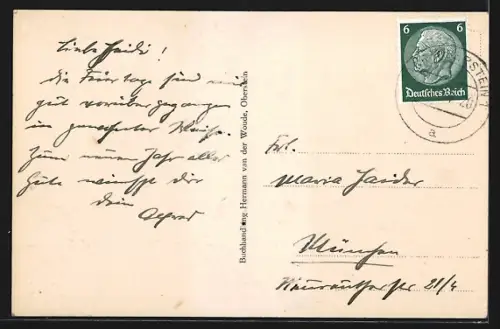 Liebe Heidi!
die Feiertage sind mir
gut vorübergegangen
in gewohnter Weise.
Zum neuen Jahr alles
Gute wünscht dir
dein
Alfred
Buchhandlung Hermann van der Woude, Oberstein
6 6
Deutsches Reich
RSTEIN 1
20
a
Frl.
Maria Haider
München
21/4